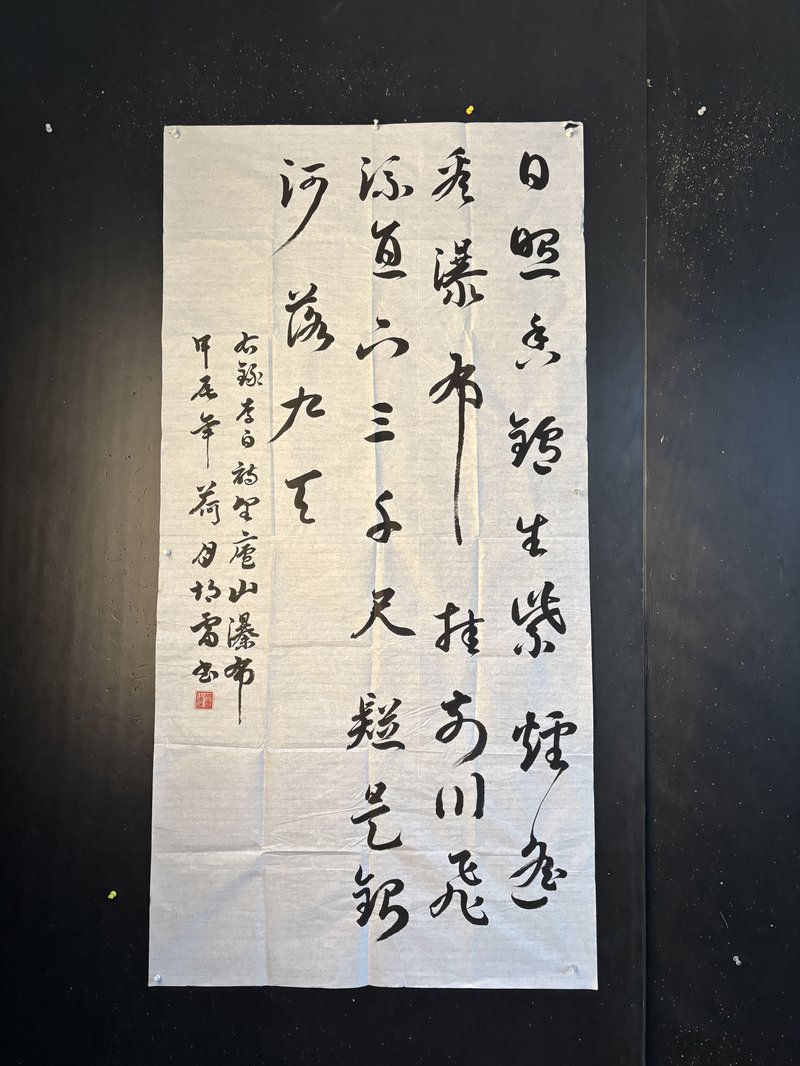 日照香鑪生紫煙遙
看瀑布挂前川飛
流直下三千尺疑是銀
河落九天
右錄李白詩望廬山瀑布
甲辰年荷月 雷书